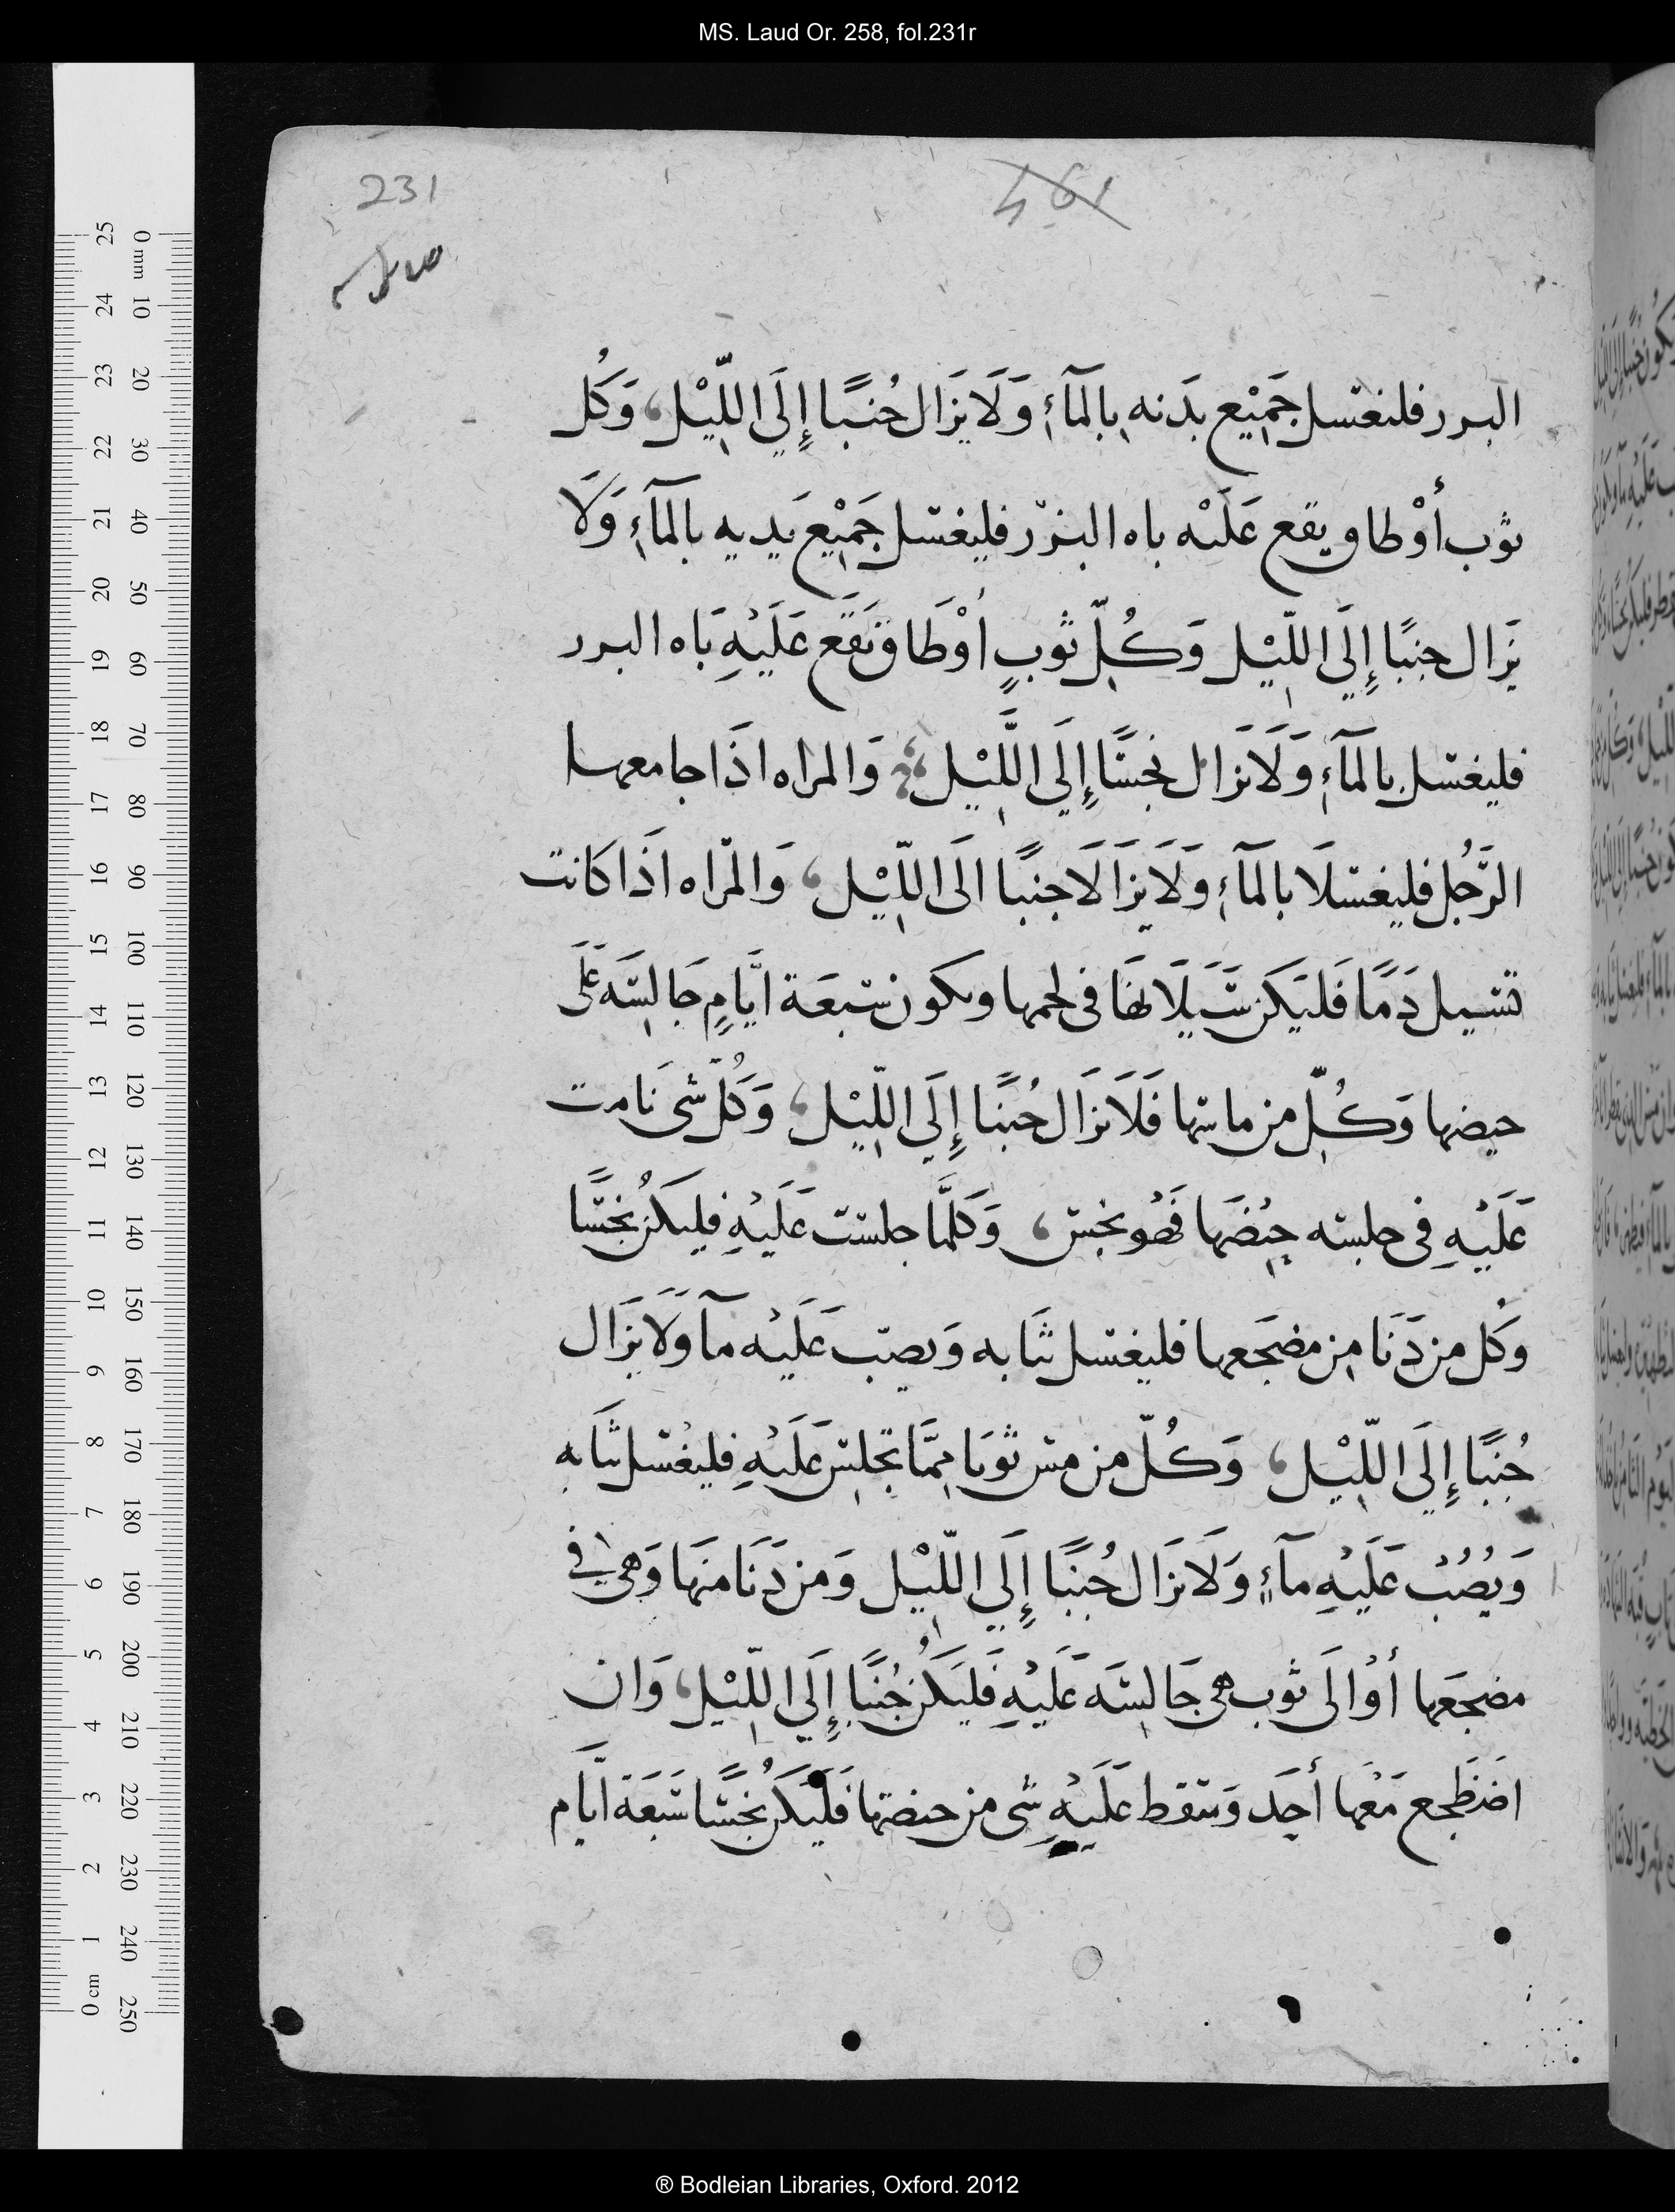 MS. Laud Or. 258, fol.231r
231
461
البرر فلنغتسل جَمِيْع بدَنه بالمآءِ وَلَا يَزَال جُنبًا إِلَى اللّيْل، وَكُل
ثوب أوْطا و يقع عَلَيْه باه البزر فليغتسل جَمِيْع يديه بالمآءِ وَلَا
يَزَال جنبًا إِلَى اللّيْل وَكُلّ ثوبٍ أوْطَا و يَقَع عَلَيْهِ بَاه البرر
فليغتسل بالمآءِ وَلَا يَزَال نجسًا إِلَى اللَّيْل، وَالمراه اذَا جامعها
الرَّجُل فليغتسلَا بالمآءِ وَلَا يَزَالَا جنبًا الَى اللّيْل، وَالمرَاه اذَا كانت
تسيل دَمًا فَليَكن سَيَلَانهَا فى لحمها ويكون سَبعَة ايَّامٍ جَالسَه عَلَى
حيضها وَكُلّ من ماسها فَلَا يزَال جُنبًا إِلَى اللّيْل، وَكُلّ شى نَامت
عَلَيْهِ فى جلسته حِيْضَها فَهُو نجس، وَكلّما جلست عَلَيْهِ فليكن نجسًا
وَكُل من دَنَا مِن مضجَعها فليغتسل ثيَابه وَيصبّ عَلَيْه مآ وَلَا يزَال
جُنبًا إِلَى اللّيْل، وَكُلّ من مس ثوبَا مِمَّا تجلِس عَلَيْهِ فليغْسل ثيَابه
وَيصُبُّ عَلَيْهِ مآءٍ وَلَا يزَال جُنبًا إِلَى اللّيْل وَمَن دَنَا منهَا وَهىَ فى
مضجَعها أوْ الَى ثوب هى جَالسَه عَلَيْهِ فَليَكُن جُنبًا إِلَى اللّيْل، وَان
اضَطَجع مَعْها أحَد وَسقط عَلَيْهِ شى من حيضتها فَليَكُن نجسًا سَبعَة ايَّام
® Bodleian Libraries, Oxford. 2012